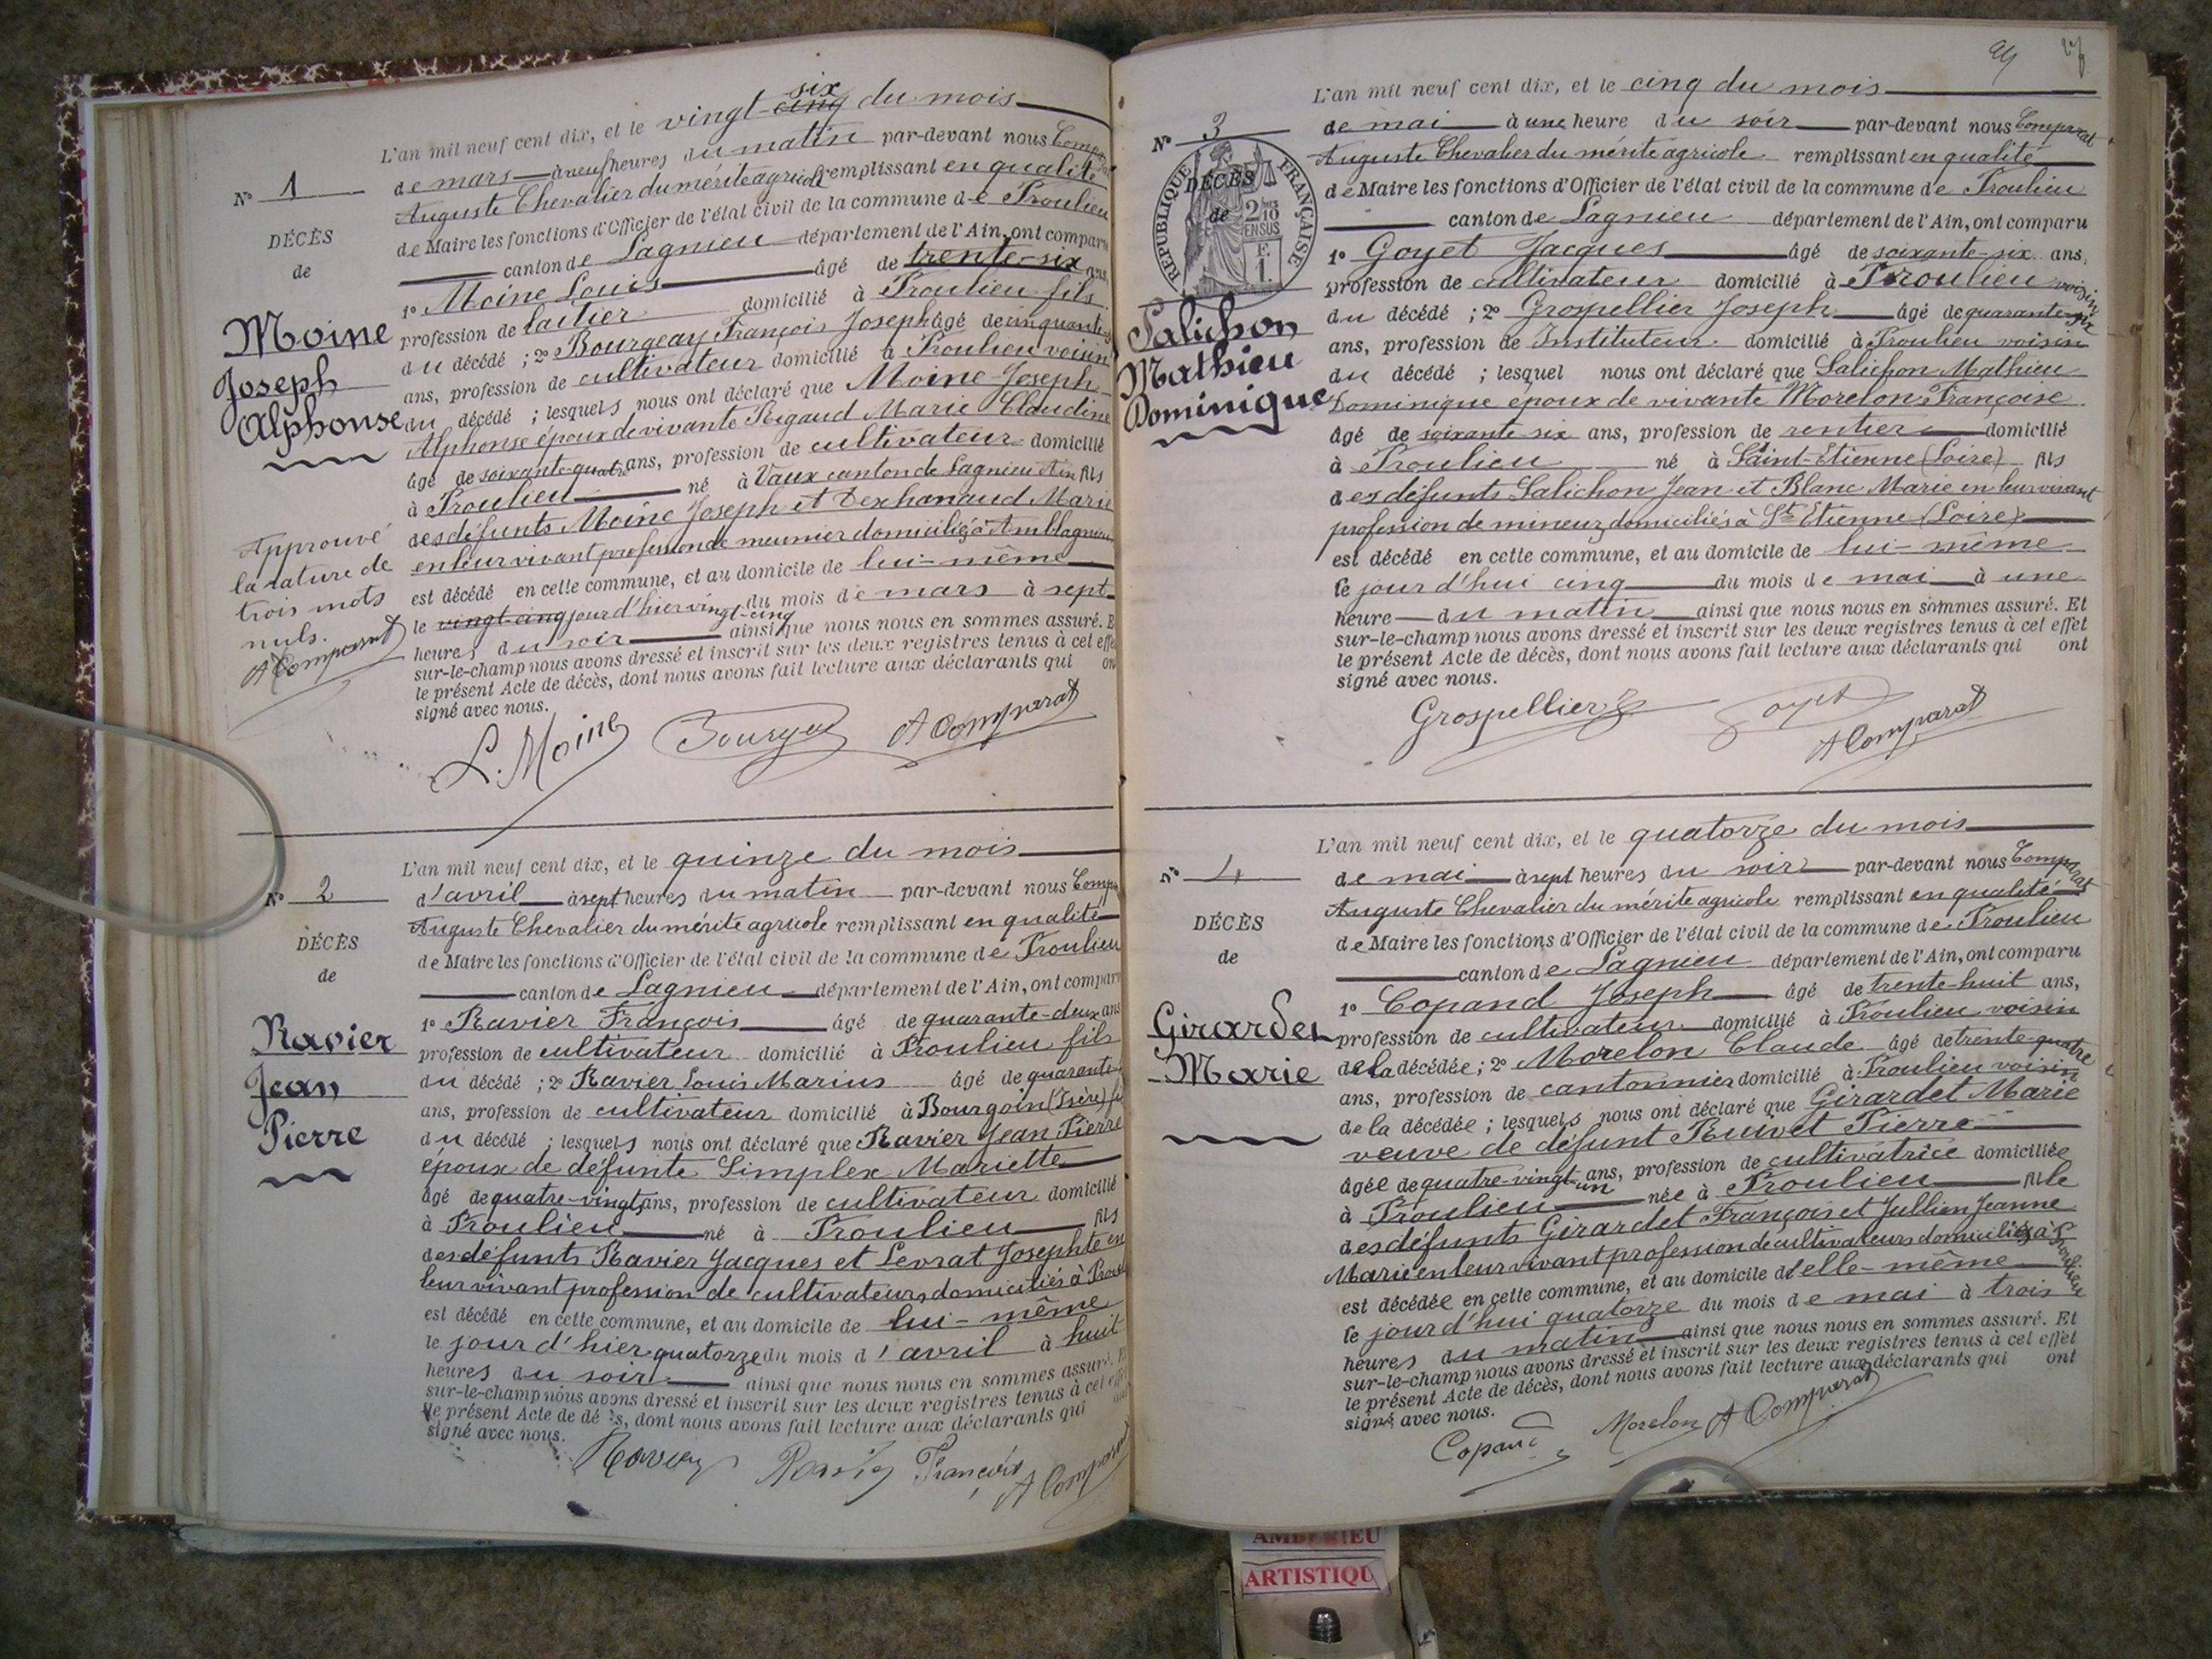 L'an mil neuf cent dix, et le vingt-cinq six du mois
N° 1
de mars à neuf heures du matin par-devant nous
Auguste Chevalier du mérite agricole remplissant en qualité
DÉCÈS
de Maire les fonctions d'Officier de l'état civil de la commune de Proulieu
de
canton de Lagnieu département de l'Ain, ont comparu
1° Moine Louis âgé de trente-six ans,
Moine
Joseph
Alphonse
profession de laitier domicilié à Proulieu fils
du décédé ; 2° Bourgeay François Joseph âgé de cinquante
ans, profession de cultivateur domicilié à Proulieu voisin
du décédé ; lesquels nous ont déclaré que Moine Joseph
Alphonse époux de vivante Rigaud Marie Claudine
âgé de soixante-quatre ans, profession de cultivateur domicilié
à Proulieu né à Vaux canton de Lagnieu Ain fils
des défunts Moine Joseph et Marie
en leur vivant profession de meunier domiciliés à
est décédé en cette commune, et au domicile de lui-même
le vingt-cinq jour d'hier vingt-cinq du mois de mars à sept
heures du soir ainsi que nous nous en sommes assuré. Et
sur-le-champ nous avons dressé et inscrit sur les deux registres tenus à cet effet
le présent Acte de décès, dont nous avons fait lecture aux déclarants qui ont
signé avec nous.
Approuvé
la rature de
trois mots
nuls.
A Comparat
L. Moine Bourgeay A Comparat
L'an mil neuf cent dix, et le quinze du mois
N° 2
d'avril à sept heures du matin par-devant nous
Auguste Chevalier du mérite agricole remplissant en qualité
DÉCÈS
de Maire les fonctions d'Officier de l'état civil de la commune de Proulieu
de
canton de Lagnieu département de l'Ain, ont comparu
Ravier
Jean
Pierre
1° Ravier François âgé de quarante-deux ans
profession de cultivateur domicilié à Proulieu fils
du décédé ; 2° Ravier Louis Marius âgé de quarante
ans, profession de cultivateur domicilié à Bourgoin (Isère) fils
du décédé ; lesquels nous ont déclaré que Ravier Jean Pierre
époux de défunte Simplex Mariette
âgé de quatre-vingts ans, profession de cultivateur domicilié
à Proulieu né à Proulieu fils
des défunts Ravier Jacques et Levrat Josephte en
leur vivant profession de cultivateurs domiciliés à Proulieu
est décédé en cette commune, et au domicile de lui-même
le jour d'hier quatorze du mois d'avril à huit
heures du soir ainsi que nous nous en sommes assuré. Et
sur-le-champ nous avons dressé et inscrit sur les deux registres tenus à cet effet
le présent Acte de décès, dont nous avons fait lecture aux déclarants qui ont
signé avec nous.
Ravier François A Comparat
L'an mil neuf cent dix, et le cinq du mois
N° 3
de mai à une heure du soir par-devant nous Comparat
Auguste Chevalier du mérite agricole remplissant en qualité
RÉPUBLIQUE FRANÇAISE
DÉCÈS
de
2/10 EN SUS
F.
1.
de Maire les fonctions d'Officier de l'état civil de la commune de Proulieu
canton de Lagnieu département de l'Ain, ont comparu
1° Goyet Jacques âgé de soixante-six ans,
profession de cultivateur domicilié à Proulieu voisin
Salichon
Mathieu
Dominique
du décédé ; 2° Grospellier Joseph âgé de quarante-six
ans, profession de Instituteur domicilié à Proulieu voisin
du décédé ; lesquel nous ont déclaré que Salichon Mathieu
Dominique époux de vivante Morelon Françoise
âgé de soixante-six ans, profession de rentier domicilié
à Proulieu né à Saint-Etienne (Loire) fils
des défunts Salichon Jean et Blanc Marie en leur vivant
profession de mineurs domiciliés à St Etienne (Loire)
est décédé en cette commune, et au domicile de lui-même
le jour d'hui cinq du mois de mai à une
heure du matin ainsi que nous nous en sommes assuré. Et
sur-le-champ nous avons dressé et inscrit sur les deux registres tenus à cet effet
le présent Acte de décès, dont nous avons fait lecture aux déclarants qui ont
signé avec nous.
Grospellier Goyet A Comparat
L'an mil neuf cent dix, et le quatorze du mois
N° 4
de mai à sept heures du soir par-devant nous Comparat
Auguste Chevalier du mérite agricole remplissant en qualité
DÉCÈS
de Maire les fonctions d'Officier de l'état civil de la commune de Proulieu
de
canton de Lagnieu département de l'Ain, ont comparu
Girardet
Marie
1° Copand Joseph âgé de trente-huit ans,
profession de cultivateur domicilié à Proulieu voisin
de la décédée ; 2° Morelon Claude âgé de trente-quatre
ans, profession de cantonnier domicilié à Proulieu voisin
de la décédée ; lesquels nous ont déclaré que Girardet Marie
veuve de défunt Ruivet Pierre
âgée de quatre-vingt-un ans, profession de cultivatrice domiciliée
à Proulieu née à Proulieu fille
des défunts Girardet François et Jullien Jeanne
Marie en leur vivant profession de cultivateurs domiciliés à Proulieu
est décédée en cette commune, et au domicile d'elle-même
le jour d'hui quatorze du mois de mai à trois
heures du matin ainsi que nous nous en sommes assuré. Et
sur-le-champ nous avons dressé et inscrit sur les deux registres tenus à cet effet
le présent Acte de décès, dont nous avons fait lecture aux déclarants qui ont
signé avec nous.
Copand Morelon A Comparat
ARTISTIQU